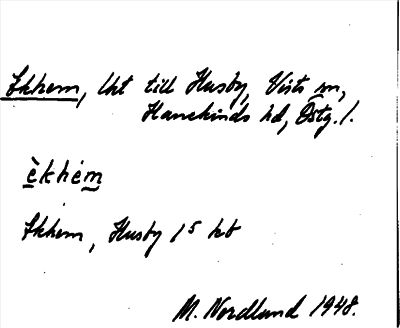 Ekhem, lht till Husby, Vists sn,
Hanekinds hd, Östg. l.
èkhém
Ekhem, Husby 1⁵ kb
M. Nordlund 1948.